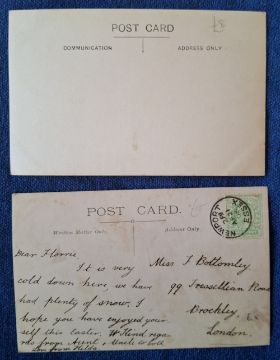 POST CARD
COMMUNICATION
ADDRESS ONLY
POST CARD.
Written Matter Only.
Address Only.
NEWPORT
ESSEX
Dear Florrie
It is very
cold down here, we have
had plenty of snow. I
hope you have enjoyed your
self this Easter. Kind rega
rds from Aunt & Uncle to all
Love from Hilda
Miss F Bottomley
99 Tressillian Road
Brockley
London.